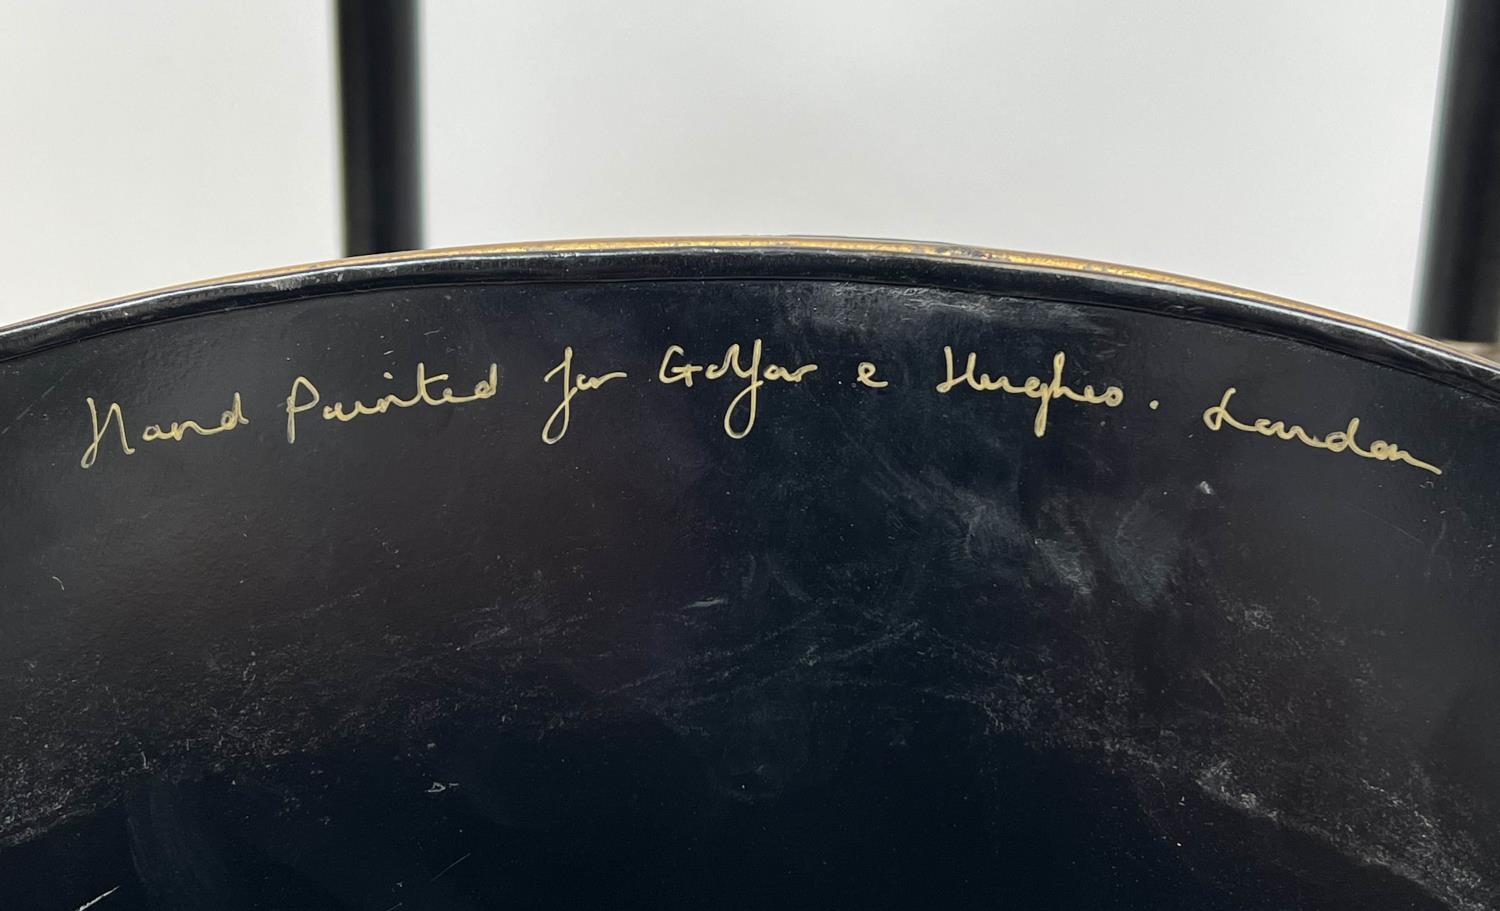 Hand Painted for Golfar & Hughes. London